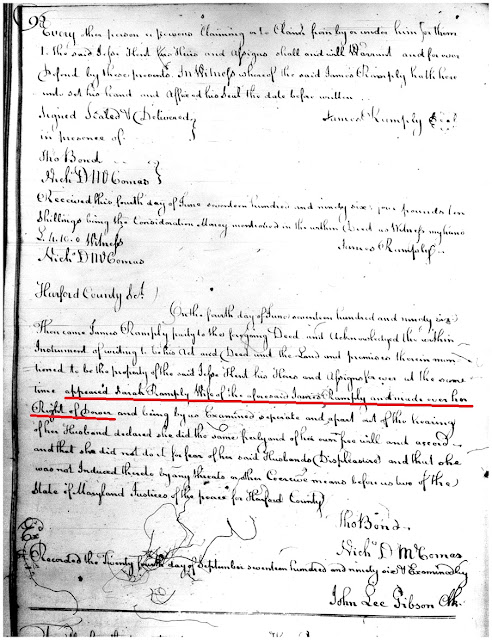 92
Every other person or persons Claiming or to Claim from by or under him for them
the said Jesse Kent his Heirs and Assigns shall and will Warrant and for ever
Defend by these presents In Witness whereof the said James Rumply hath here
unto set his hand and Affixed his Seal the date before written
Signed Sealed & Delivered } James Rumply Seal
in presence of
Tho Bond
Nich D McComas }
Received this fourth day of June seventeen hundred and ninety six four pounds ten
Shillings being the Consideration Money mentioned in the within Deed as Witness my hand
£ 4.10.0 Witness James Rumply
Nich D McComas
Harford County Sct.
On the fourth day of June seventeen hundred and ninety six
Then came James Rumply party to the foregoing Deed and Acknowledged the within
Instrument of writing to be his Act and Deed and the Land and premises therein men
tioned to be the property of the said Jesse Kent his Heirs and Assigns for ever at the same
time appeared Sarah Rumply Wife of the aforesaid James Rumply and made over her
Right of Dower and being by us Examined seperate and apart out of the hearing
of her Husband declared she did the same freely and of her own free will and accord
and that she did not do it for fear of her said Husbands Displeasure and that she
was not Induced thereto by any threats or other Coercive means before us two of the
State of Maryland Justices of the peace for Harford County
Tho Bond
Nich D McComas
Recorded the Twenty fourth day of September seventeen hundred and ninety six & Examined by
John Lee Gibson Clk.